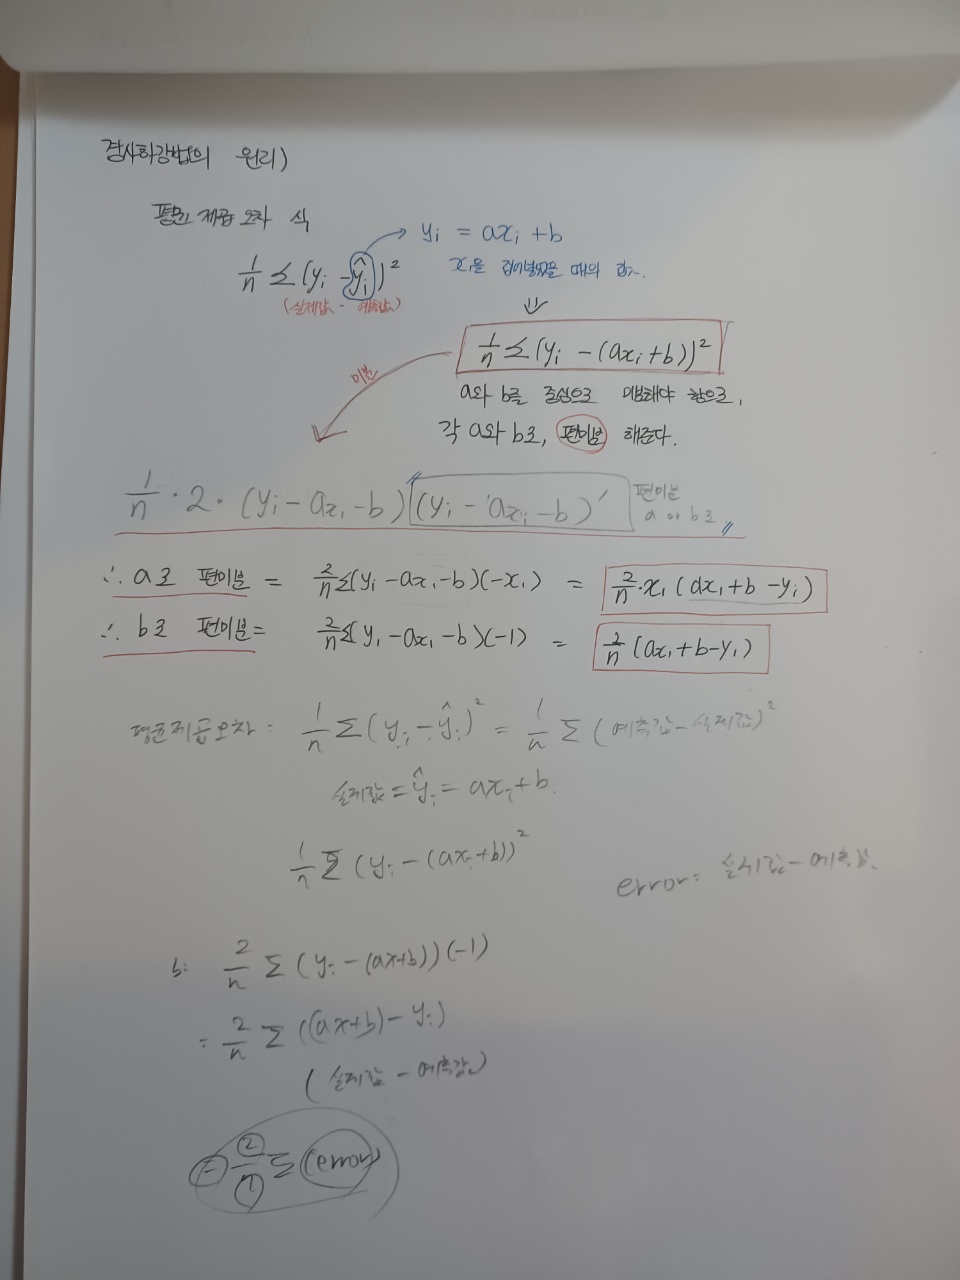 경사하강법의 원리)
평균 제곱 오차 식
1/n Σ(yᵢ - ŷᵢ)² → yᵢ = axᵢ + b
(실제값 - 예측값) xᵢ을 집어넣었을 때의 값.
⇓
1/n Σ(yᵢ - (axᵢ+b))²
미분
a와 b를 중심으로 미분해야 함으로,
각 a와 b로, 편미분 해준다.
1/n · 2 · (yᵢ - axᵢ - b)(yᵢ - axᵢ - b)′ 편미분
a 와 b로
∴ a로 편미분 = 2/n Σ(yᵢ - axᵢ - b)(-xᵢ) = 2/n · xᵢ (axᵢ + b - yᵢ)
∴ b로 편미분 = 2/n Σ(yᵢ - axᵢ - b)(-1) = 2/n (axᵢ + b - yᵢ)
평균제곱오차 : 1/n Σ(yᵢ - ŷᵢ)² = 1/n Σ (예측값 - 실제값)²
실제값 = ŷᵢ = axᵢ + b
1/n Σ (yᵢ - (axᵢ+b))²
error = 실제값 - 예측값
b: 2/n Σ (yᵢ - (ax+b))(-1)
= 2/n Σ ((ax+b) - yᵢ)
(실제값 - 예측값)
= 2/n Σ (error)